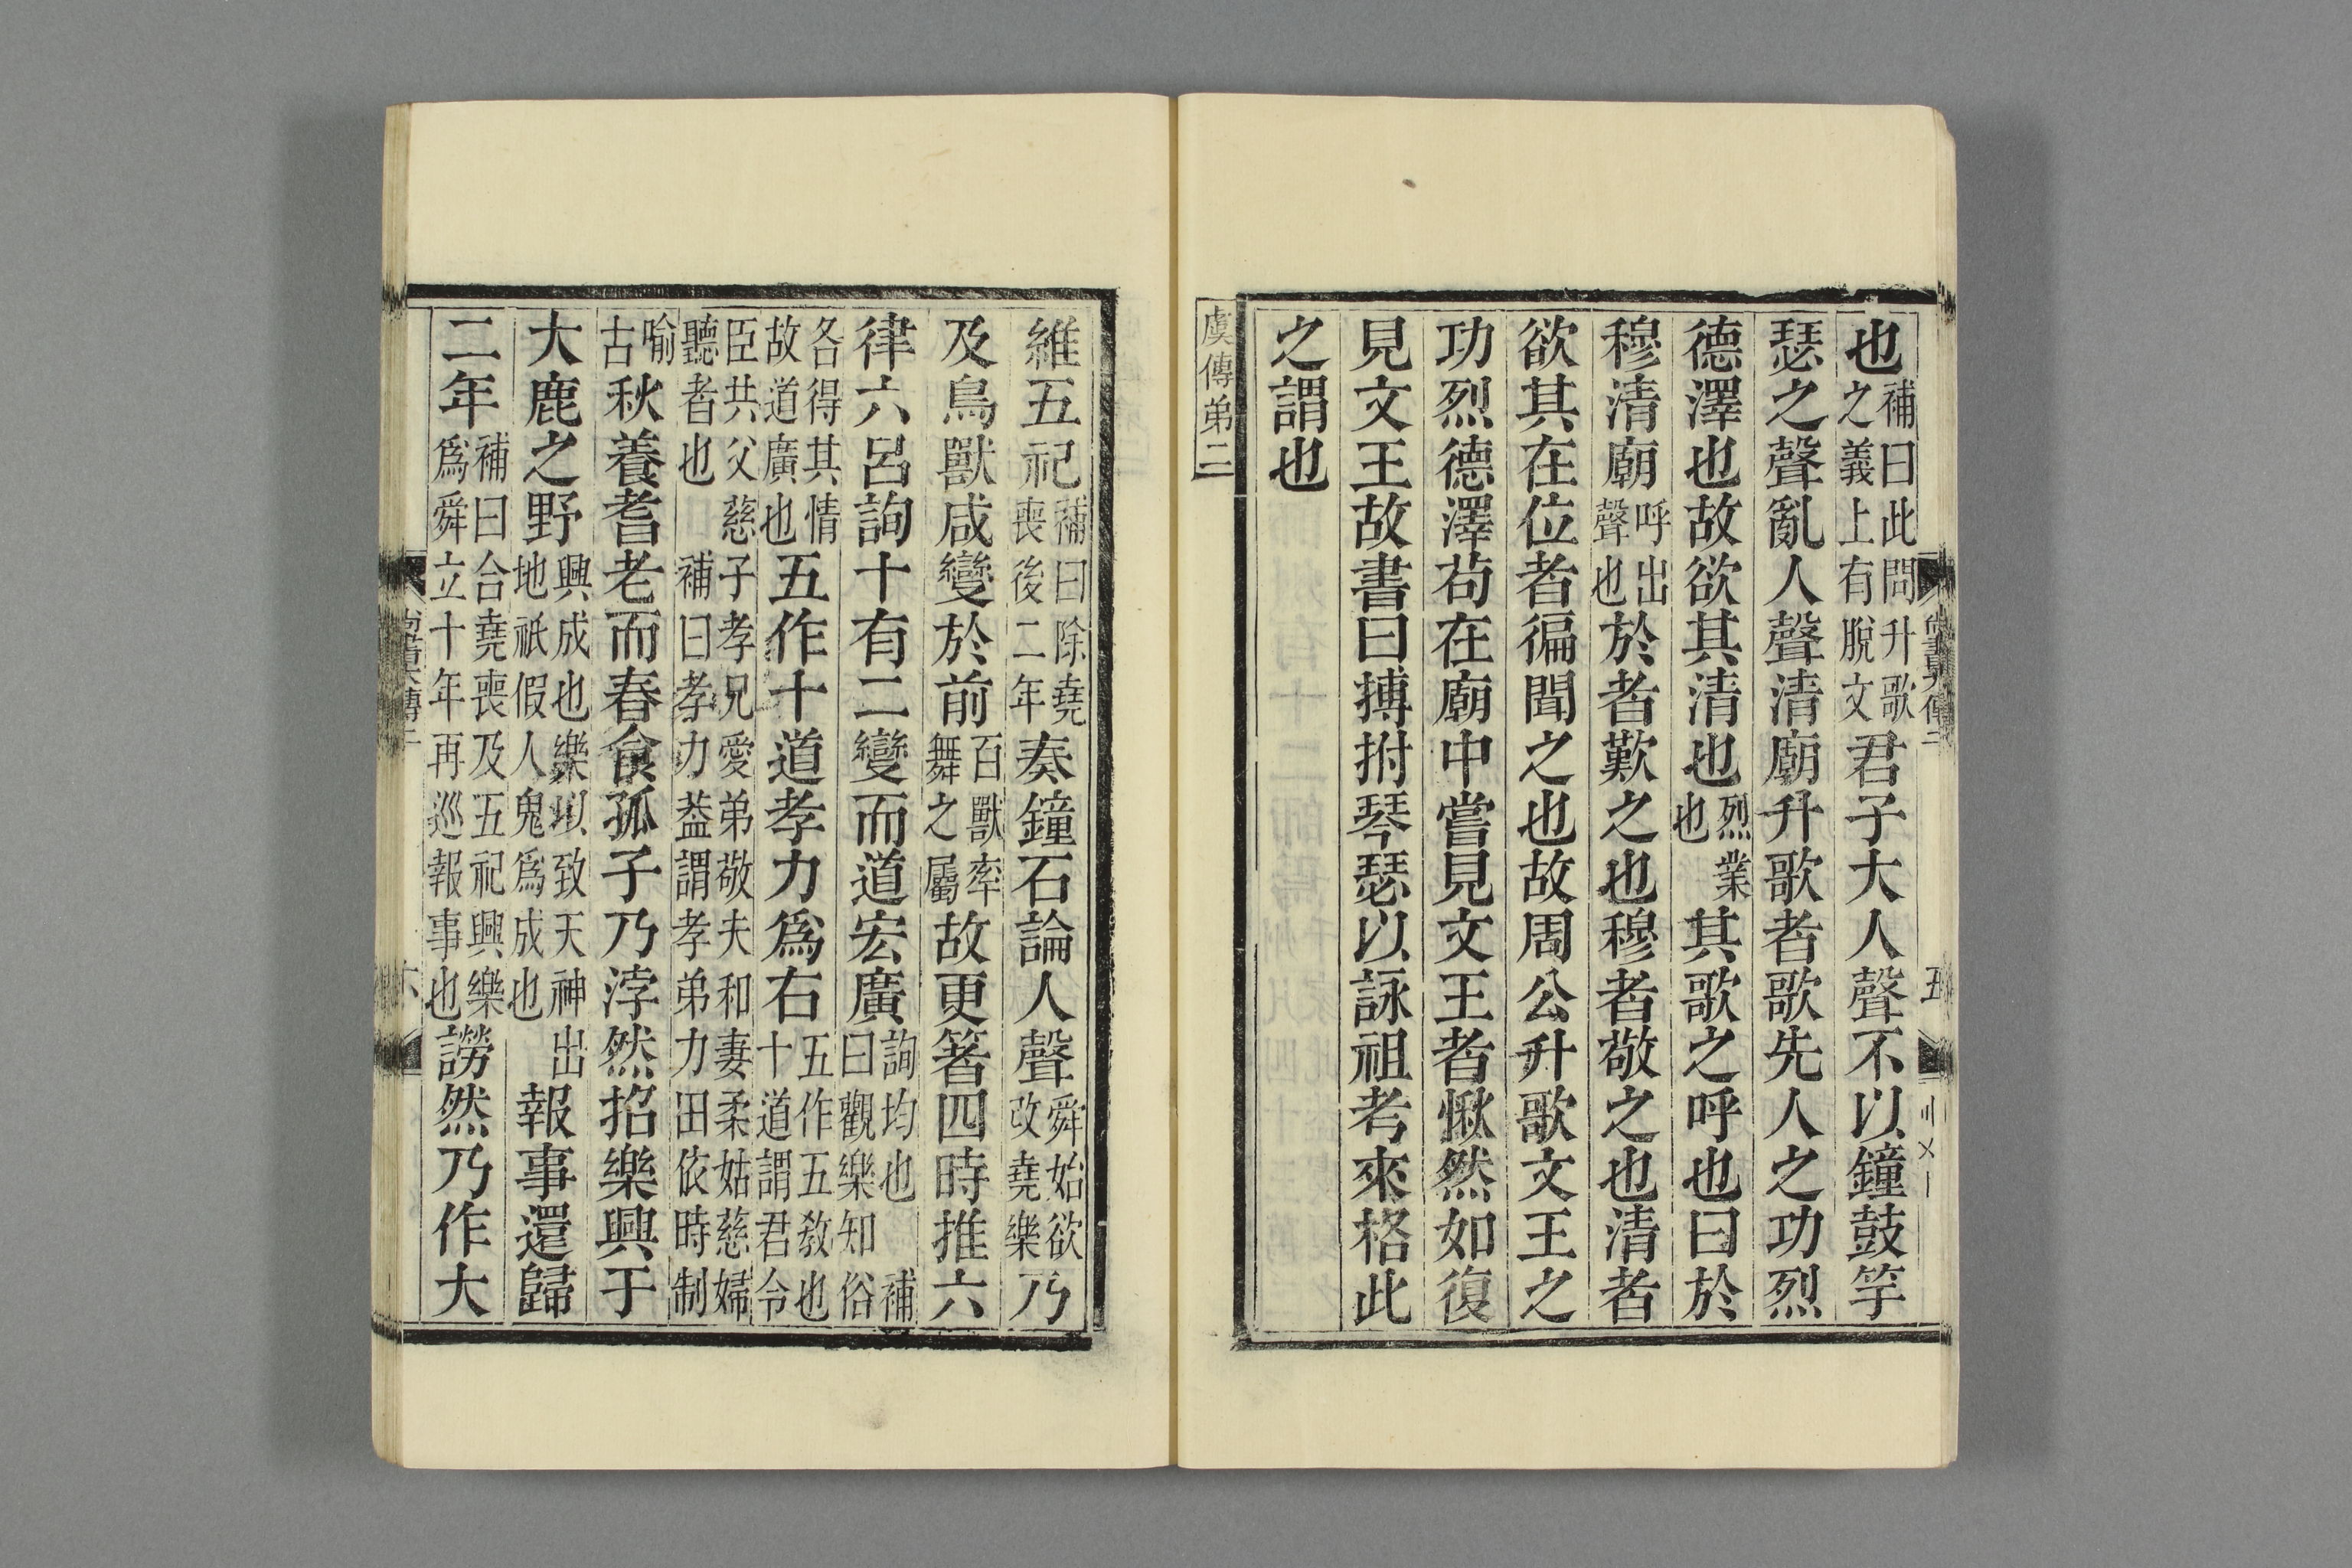 也補曰此問升歌之義上有脫文君子大人聲不以鐘鼓竽
瑟之聲亂人聲清廟升歌者歌先人之功烈
德澤也故欲其清也烈業也其歌之呼也曰於
穆清廟呼出聲也於者歎之也穆者敬之也清者
欲其在位者徧聞之也故周公升歌文王之
功烈德澤苟在廟中嘗見文王者愀然如復
見文王故書曰搏拊琴瑟以詠祖考來格此
之謂也
虞傳弟二
維五祀補曰除堯喪後二年奏鐘石論人聲舜始欲改堯樂乃
及鳥獸咸變於前百獸率舞之屬故更箸四時推六
律六呂詢十有二變而道宏廣詢均也補曰觀樂知俗
各得其情故道廣也五作十道孝力爲右五作五教也十道謂君令
臣共父慈子孝兄愛弟敬夫和妻柔姑慈婦聽者也補曰孝力葢謂孝弟力田依時制
喻古秋養耆老而春食孤子乃浡然招樂興于
大鹿之野興成也樂㠯致天神出地祇假人鬼爲成也報事還歸
二年補曰合堯喪及五祀興樂爲舜立十年再巡報事也謗然乃作大